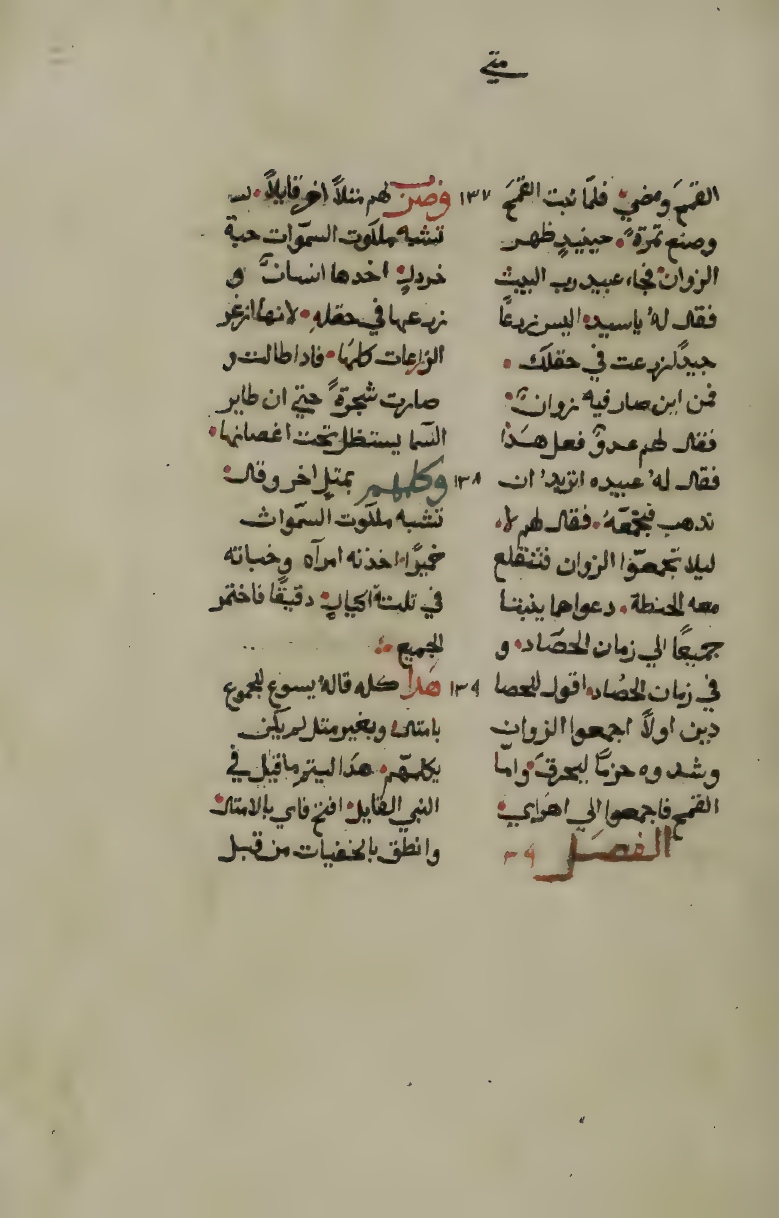 متي
القمحَ ومضي فلمّا نبت القمح
وصنع تمرة حينيدٍ ظهر
الزوان فجاء عبيد رب البيت
فقال له ياسيد اليس زرعًا
جيدًا زرعت في حقلك
فمن اين صار فيه زوان
فقال لهم عدوٌ فعل هذا
فقال له عبيده اتريد ان
ندهب فنجمعه فقال لهم لا
ليلا تجمعوا الزوان فتنقلع
معه الحنطة دعواها ينبتا
جميعًا الي زمان الحصاد و
في زمان الحصاد اقول للحصا
دين اولاً اجمعوا الزوان
وشدوه حزمًا ليحرق وامّا
القمح فاجمعوا الي اهرايي
الفصل ٣٩
١٣٧ وضرب لهم مثلاً اخر قايلاً
تشبه ملكوت السموات حبة
خردلٍ اخدها انسان و
زرعها في حقله لانها ازغر
الزراعات كلها فادا طالت و
صارت شجرة حتي ان طاير
السما يستظل تحت اغصانها
١٣٨ وكلمهم بمتلٍ اخر وقال
تشبه ملكوت السموات
خميرًا اخدته امراه وخباته
في تلتة اكيالٍ دقيقًا فاختمر
الجميع
١٣٩ هدا كله قاله يسوع للجموع
بامتال وبغير متل لم يكن
يكلمهم هدا ليتم ما قيل في
النبي القايل افتح فاي بالامتال
وانطق بالخفيات من قبل